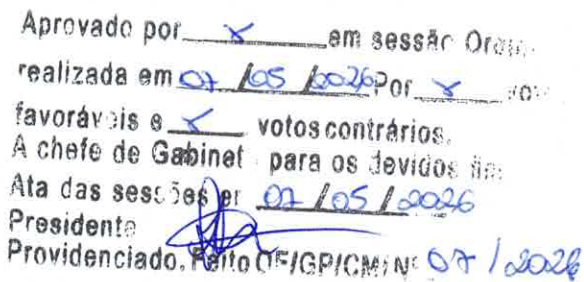 Aprovado por x em sessão
realizada em 07/05/2026 Por x
favoráveis e x votos contrários.
A chefe de Gabinet para os devidos
Ata das sessões em 07/05/2026
Presidente
Providenciado, Feito OF/GP/CM/Nº 07/2026